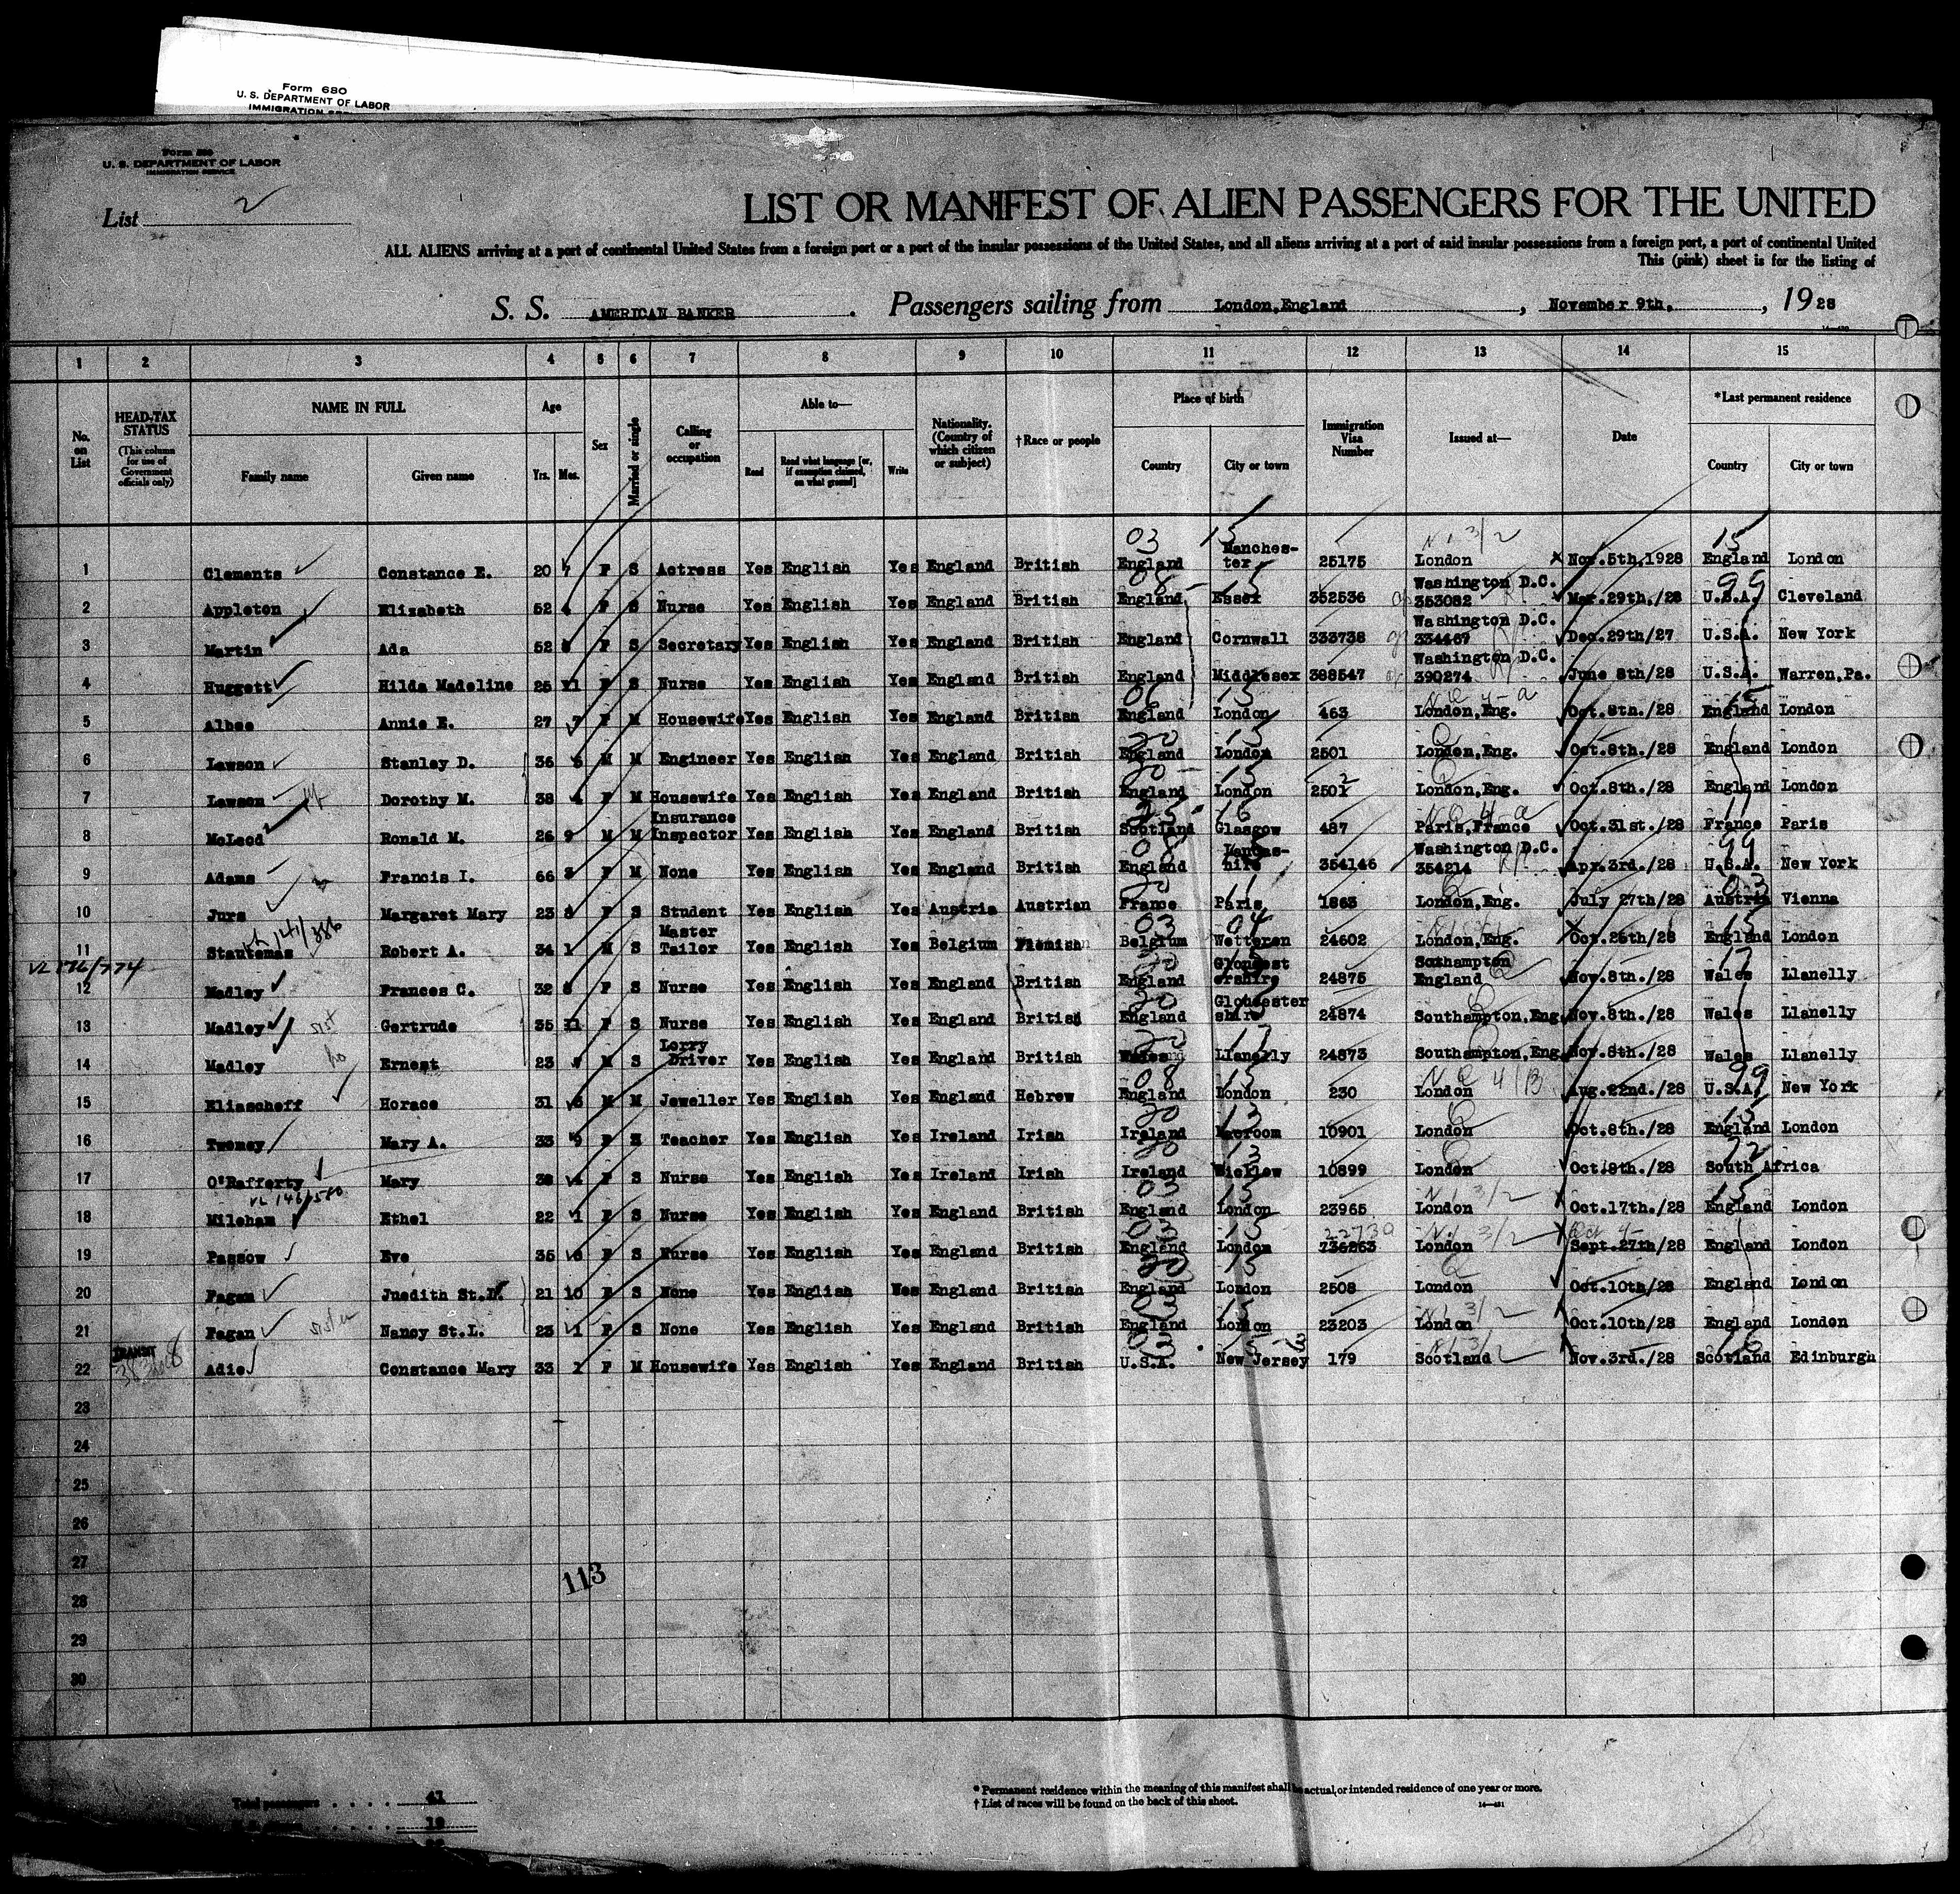 Form 680
U. S. DEPARTMENT OF LABOR
IMMIGRATION
Form 680
U. S. DEPARTMENT OF LABOR
IMMIGRATION SERVICE
List 2
LIST OR MANIFEST OF ALIEN PASSENGERS FOR THE UNITED
ALL ALIENS arriving at a port of continental United States from a foreign port or a port of the insular possessions of the United States, and all aliens arriving at a port of said insular possessions from a foreign port, a port of continental United
This (pink) sheet is for the listing of
S. S. AMERICAN BANKER . Passengers sailing from London,England , November 9th, , 1928
1 2 3 4 5 6 7 8 9 10 11 12 13 14 15
No. on List
HEAD-TAX STATUS (This column for use of Government officials only)
NAME IN FULL Family name Given name
Age Yrs. Mos.
Sex
Married or single
Calling or occupation
Able to— Read Read what language [or, if exemption claimed, on what ground] Write
Nationality. (Country of which citizen or subject)
†Race or people
Place of birth Country City or town
Immigration Visa Number
Issued at—
Date
*Last permanent residence Country City or town
1 Clements Constance E. 20 7 F S Actress Yes English Yes England British England Manches-ter 25175 London Nov.5th,1928 England London
2 Appleton Elizabeth 52 F S Nurse Yes English Yes England British England Essex 352536 Washington D.C. 353082 Mar.29th./28 U.S.A. Cleveland
3 Martin Ada 52 F S Secretary Yes English Yes England British England Cornwall 333738 Washington D.C. 334467 Dec.29th/27 U.S.A. New York
4 Huggett Hilda Madeline 25 11 F S Nurse Yes English Yes England British England Middlesex 388547 Washington D.C. 390274 June 8th/28 U.S.A. Warren,Pa.
5 Albee Annie E. 27 7 F M Housewife Yes English Yes England British England London 463 London,Eng. Oct.8th./28 England London
6 Lawson Stanley D. 36 M M Engineer Yes English Yes England British England London 2501 London,Eng. Oct.8th./28 England London
7 Lawson Dorothy M. 38 F M Housewife Yes English Yes England British England London 2502 London,Eng. Oct.8th./28 England London
8 McLeod Ronald M. 26 9 M M Insurance Inspector Yes English Yes England British Scotland Glasgow 487 Paris,France Oct.31st./28 France Paris
9 Adams Francis I. 66 F M None Yes English Yes England British England 354146 Washington D.C. 354214 Apr.3rd./28 U.S.A. New York
10 Jura Margaret Mary 23 F S Student Yes English Yes Austria Austrian France Paris 1863 London,Eng. July 27th/28 Austria Vienna
11 Stautemas Robert A. 34 1 M S Master Tailor Yes English Yes Belgium Flemish Belgium Wetteren 24602 London,Eng. Oct.26th/28 England London
12 Madley Frances C. 32 F S Nurse Yes English Yes England British England Gloucest ershire 24875 Southampton England Nov.8th./28 Wales Llanelly
13 Madley Gertrude 35 11 F S Nurse Yes English Yes England British England Gloucester shire 24874 Southampton,Eng. Nov.8th./28 Wales Llanelly
14 Madley Ernest 23 M S Lorry Driver Yes English Yes England British Wales Llanelly 24873 Southampton,Eng. Nov.8th./28 Wales Llanelly
15 Eliascheff Horace 31 M M Jeweller Yes English Yes England Hebrew England London 230 London Aug.22nd./28 U.S.A. New York
16 Twomey Mary A. 33 9 F Teacher Yes English Yes Ireland Irish Ireland Macroom 10901 London Oct.8th./28 England London
17 O'Rafferty Mary F S Nurse Yes English Yes Ireland Irish Ireland Wicklow 10899 London Oct.8th./28 South Africa
18 Mileham Ethel 22 1 F S Nurse Yes English Yes England British England London 23965 London Oct.17th./28 England London
19 Passow Eve 35 F S Nurse Yes English Yes England British England London 22730 736263 London Sept.27th/28 England London
20 Pagan Juedith St.L. 21 10 F S None Yes English Yes England British England London 2508 London Oct.10th/28 England London
21 Pagan sister Nancy St.L. 23 1 F S None Yes English Yes England British England London 23203 London Oct.10th/28 England London
TRANSIT
22 Adie Constance Mary 33 F M Housewife Yes English Yes England British U.S.A. New Jersey 179 Scotland Nov.3rd./28 Scotland Edinburgh
23
24
25
26
27
28
29
30
113
Total passengers . . . . . 41
19
* Permanent residence within the meaning of this manifest shall be actual or intended residence of one year or more.
† List of races will be found on the back of this sheet.